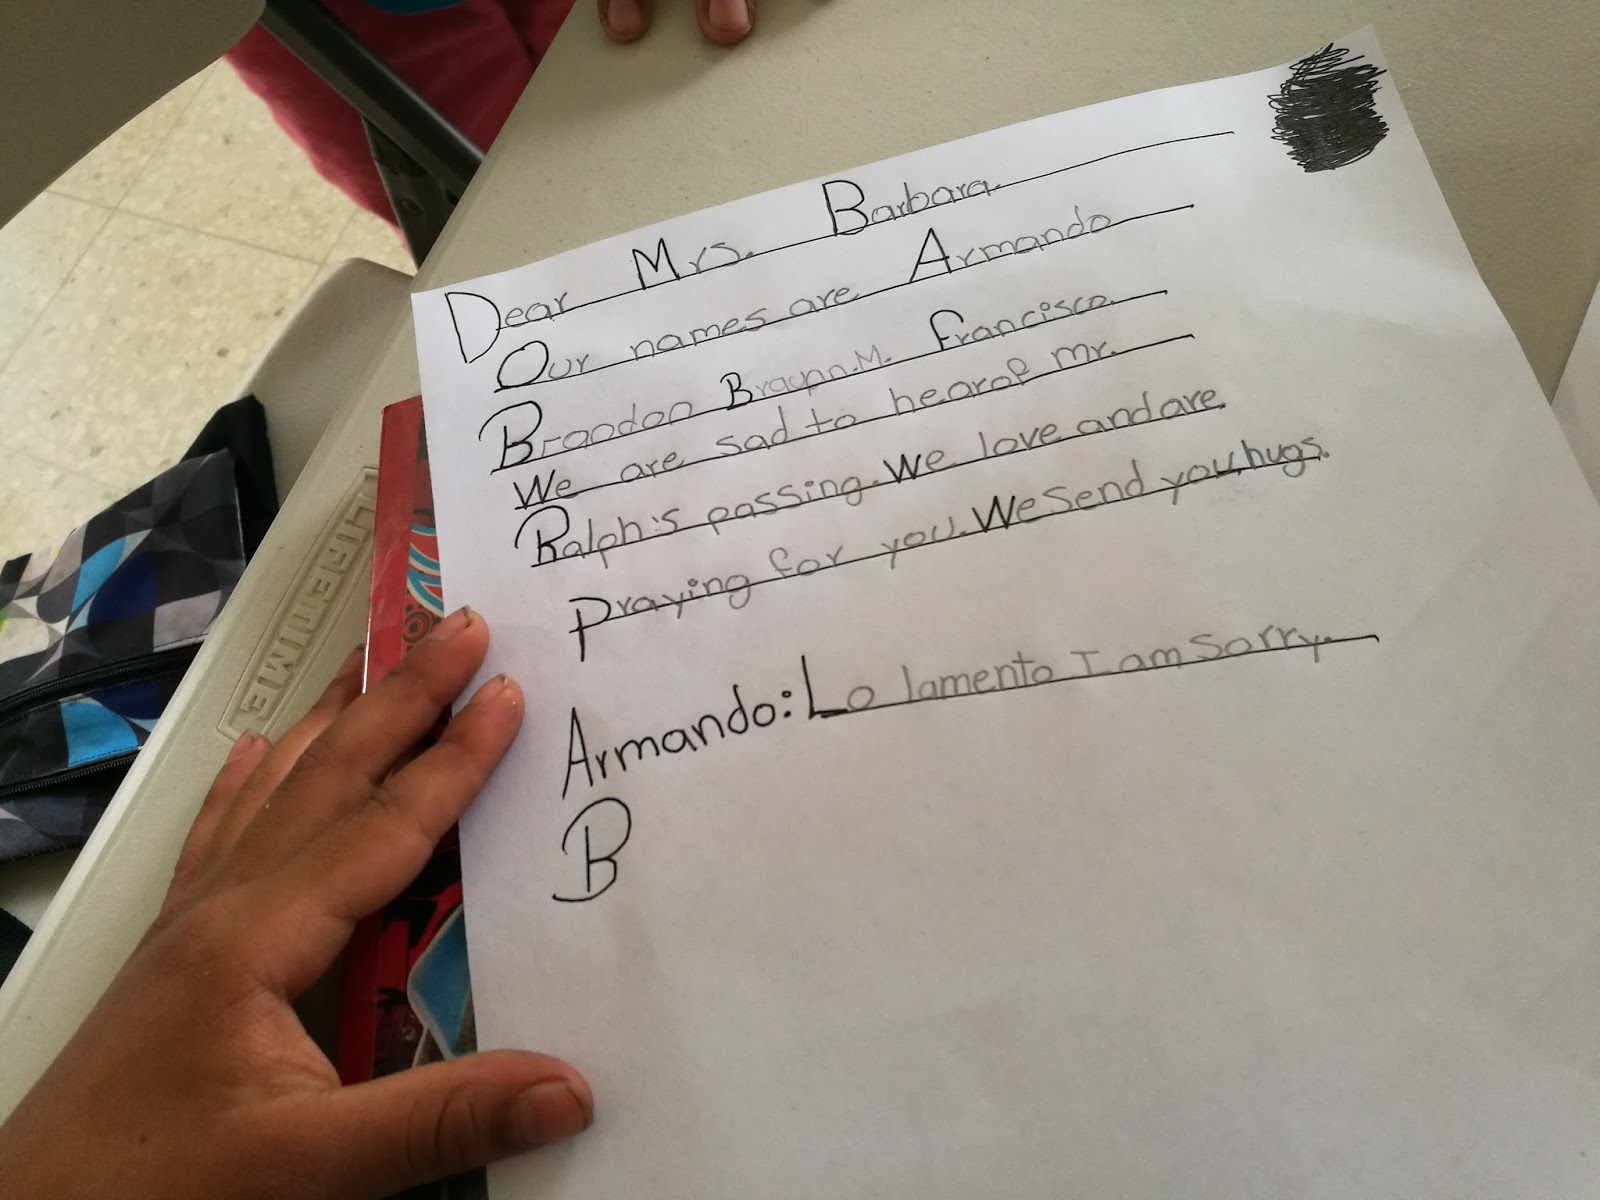 Dear Mrs. Barbara
Our names are Armando
Brandon Brayan.M. Francisco
We are sad to hear of Mr.
Ralph's passing. We love and are
Praying for you. We send you, hugs.
Armando: Lo lamento I am sorry.
B
LIFETIME